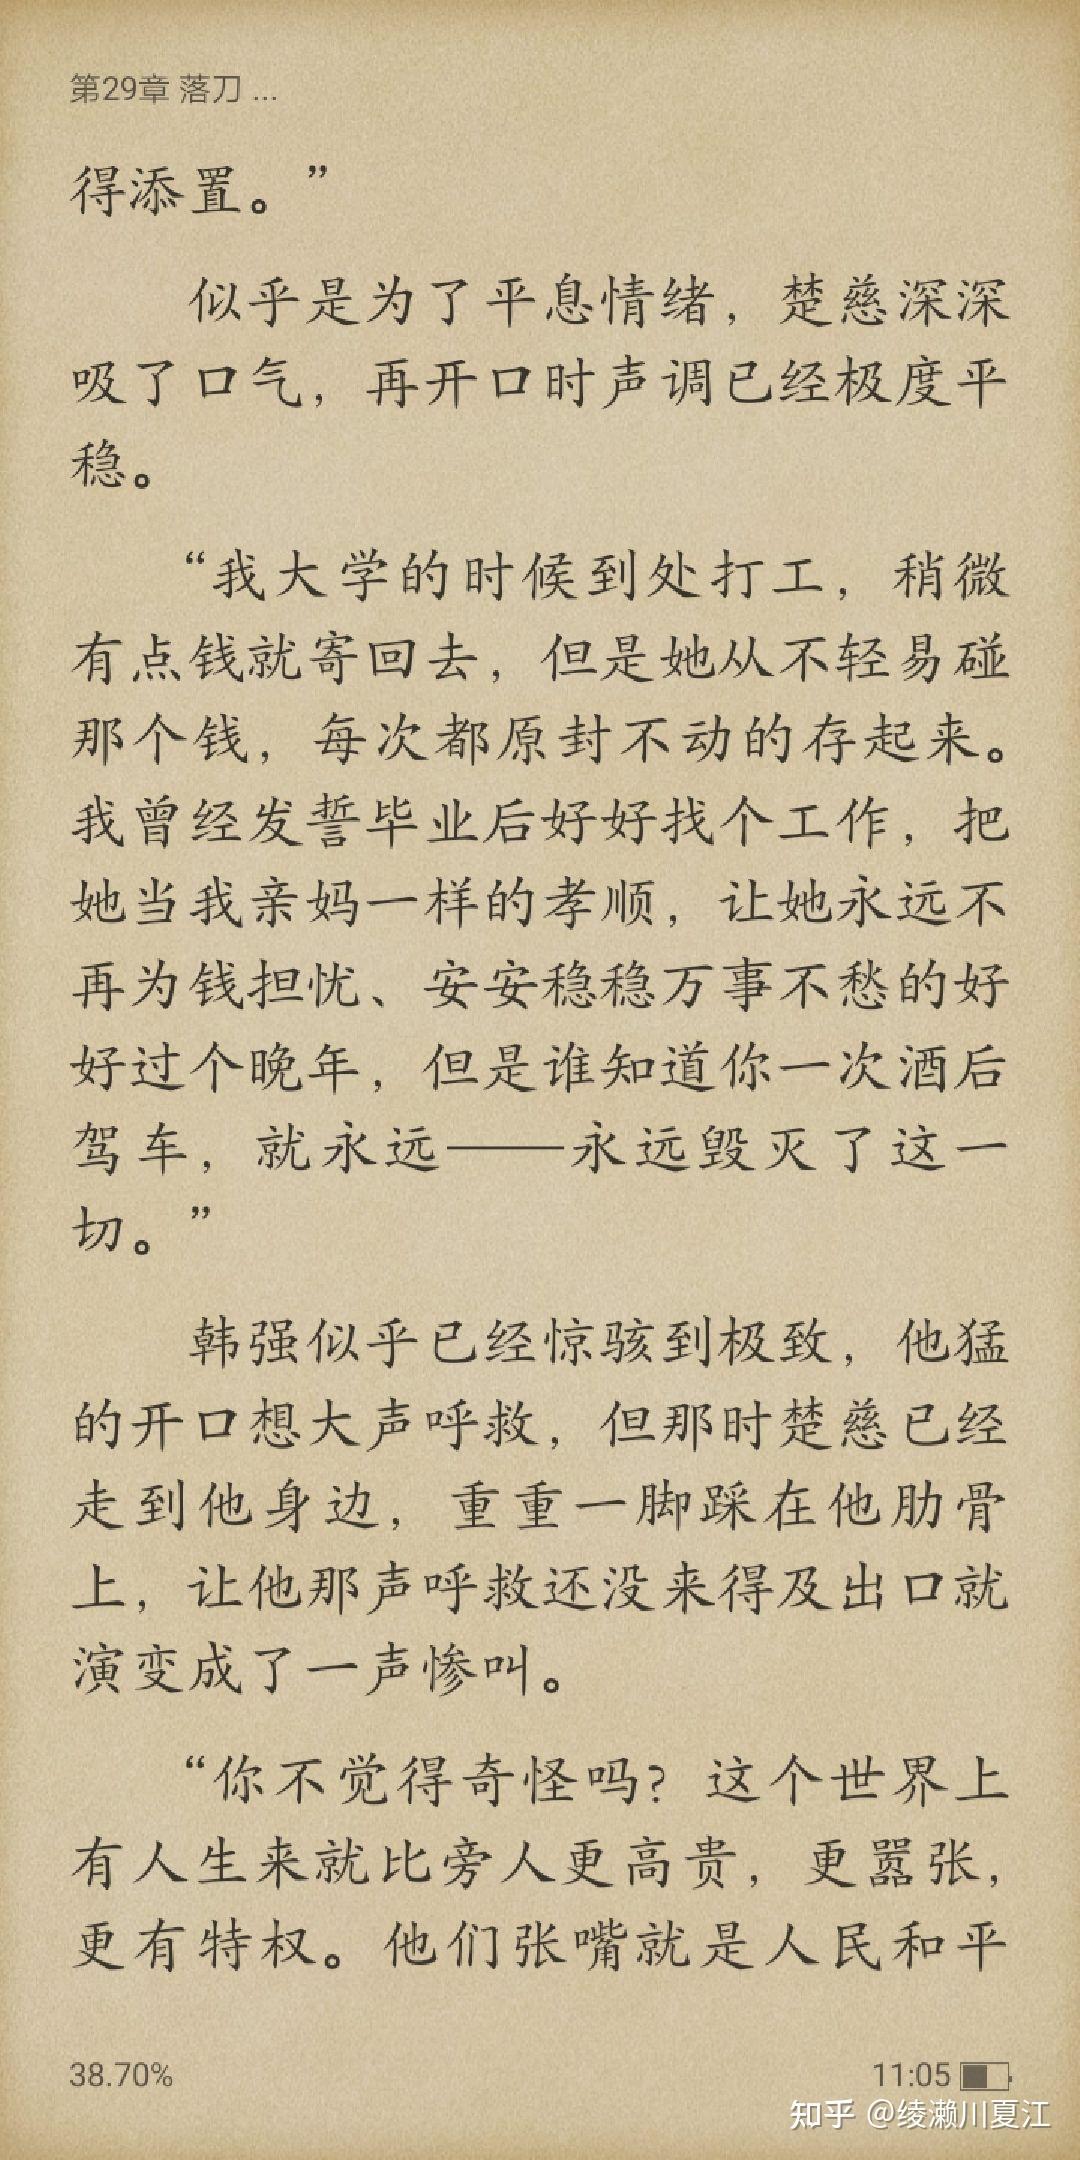 第29章 落刀 ...
得添置。”
似乎是为了平息情绪，楚慈深深
吸了口气，再开口时声调已经极度平
稳。
“我大学的时候到处打工，稍微
有点钱就寄回去，但是她从不轻易碰
那个钱，每次都原封不动的存起来。
我曾经发誓毕业后好好找个工作，把
她当我亲妈一样的孝顺，让她永远不
再为钱担忧、安安稳稳万事不愁的好
好过个晚年，但是谁知道你一次酒后
驾车，就永远——永远毁灭了这一
切。”
韩强似乎已经惊骇到极致，他猛
的开口想大声呼救，但那时楚慈已经
走到他身边，重重一脚踩在他肋骨
上，让他那声呼救还没来得及出口就
演变成了一声惨叫。
“你不觉得奇怪吗？这个世界上
有人生来就比旁人更高贵，更嚣张，
更有特权。他们张嘴就是人民和平
38.70%
11:05
知乎 @绫濑川夏江